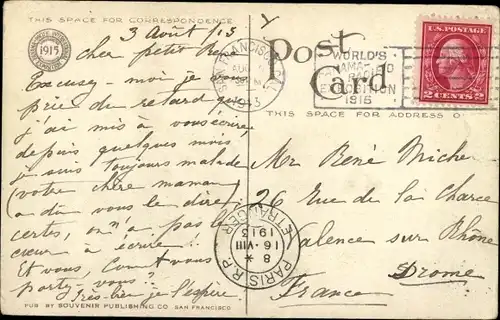 THIS SPACE FOR CORRESPONDENCE
1915
3 Août 13
Cher petit René
Excusez moi je vous
prie du retard que
j'ai mis à vous écrire,
depuis quelques mois
je suis toujours malade
(votre chère maman
a dû vous le dire)
certes, on n'a pas le
cœur à écrire.
Et vous, comment vous
portez-vous?
Très bien je l'espère
PUB BY SOUVENIR PUBLISHING CO SAN FRANCISCO
SAN FRANCISCO, CAL.
AUG
1913
Post
Card
WORLD'S
PANAMA-PACIFIC
EXPOSITION
1915
U.S. POSTAGE
2 CENTS 2
THIS SPACE FOR ADDRESS O
Mr René Miche
26 Rue de la Charce
Valence sur Rhône
Drome
France
PARIS R.P.
ETRANGER
8 * 16 - VIII
1913